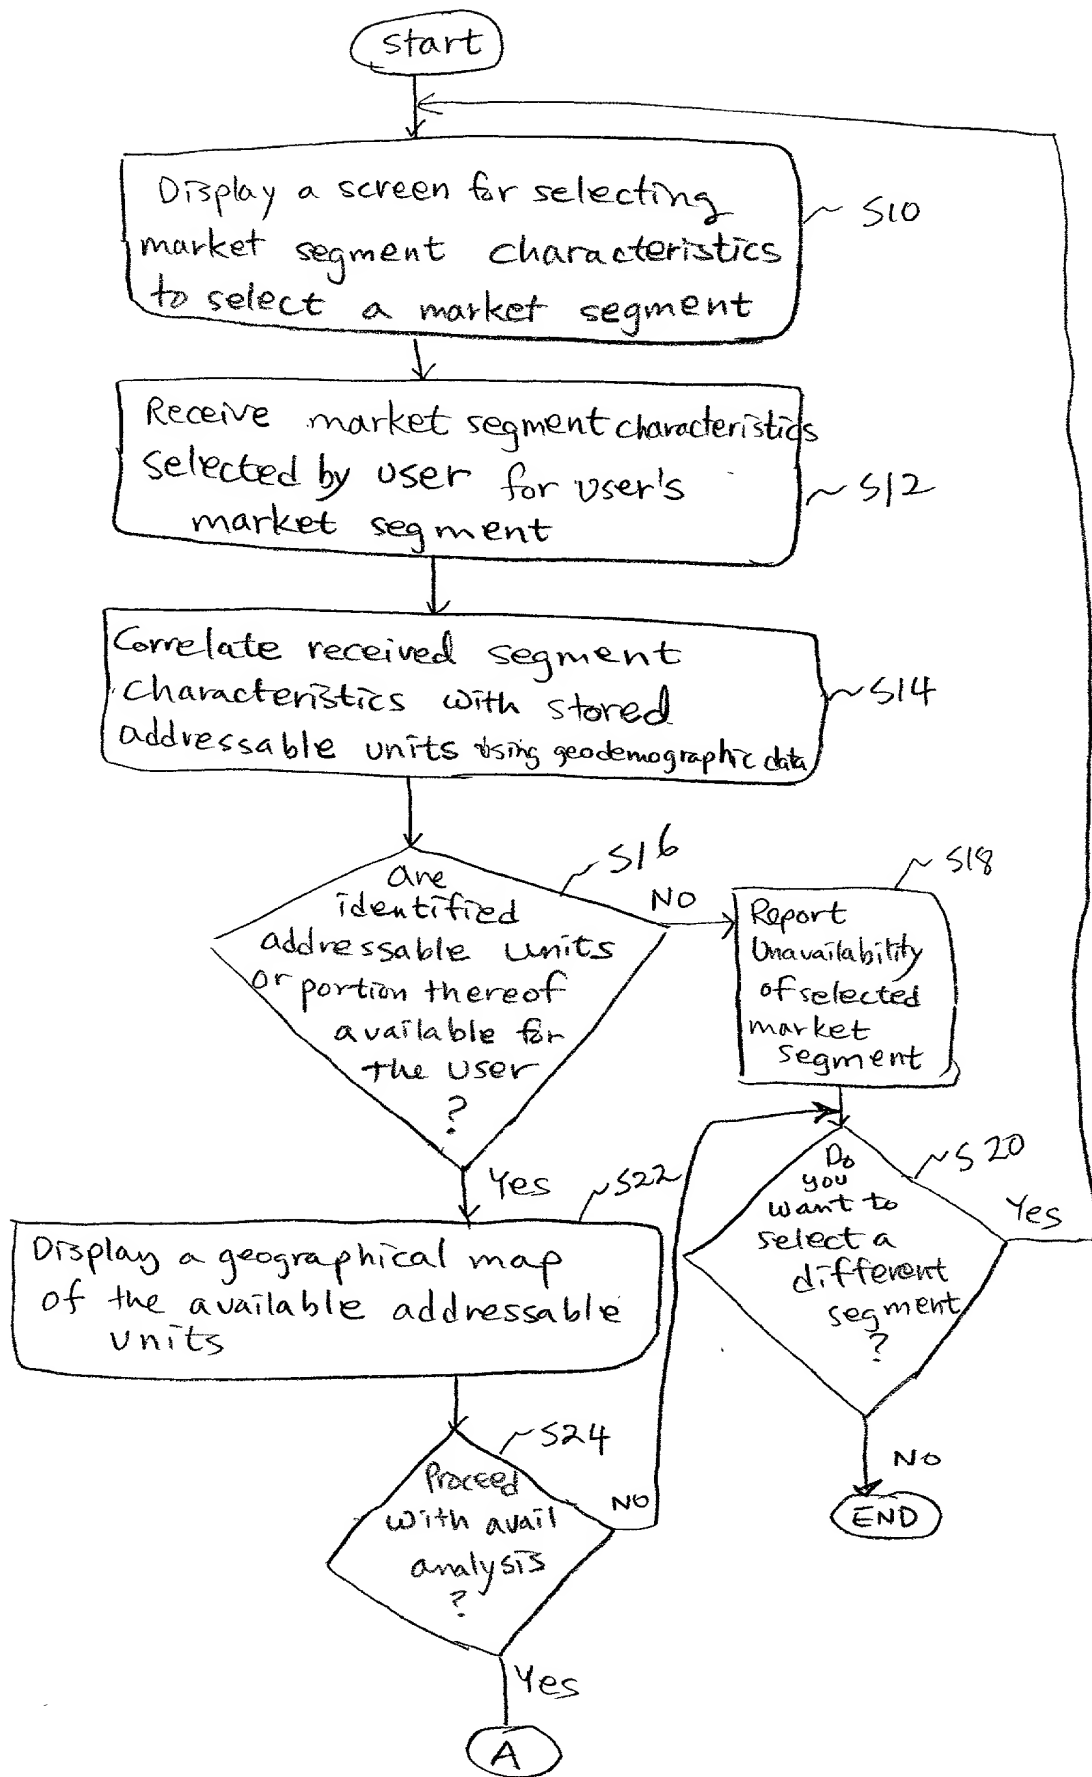 start
Display a screen for selecting
market segment characteristics
to select a market segment
S10
Receive market segment characteristics
selected by user for user's
market segment
S12
Correlate received segment
characteristics with stored
addressable units using geodemographic data
S14
are
identified
addressable units
or portion thereof
available for
the user
?
S16
NO
Yes
S18
Report
Unavailability
of selected
market
segment
Do
you
want to
select a
different
segment
?
S20
Yes
NO
END
S22
Display a geographical map
of the available addressable
units
S24
Proceed
with avail
analysis
?
NO
Yes
A